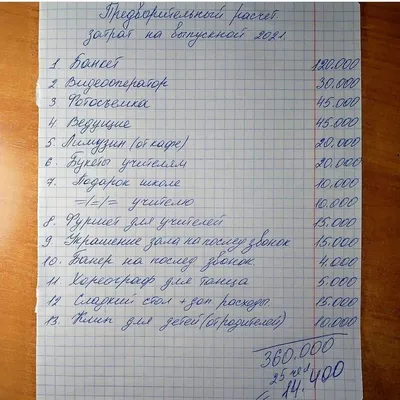 Предворительный расчет
затрат на выпускной 2021
1 Банкет 120.000
2 Видеооператор 30.000
3 Фотосъемка 45.000
4 Ведущие 45.000
5 Лимузин (от кафе) 20.000
6. Букеты учителям 20.000
7. Подарок школе 10.000
=/=/= учителю 10.000
8 Фуршет для учителей 15.000
9 Украшение зала на послед звонок 15.000
10. Банер на послед звонок 4.000
11 Хореограф для танца 5.000
12 Сладкий стол + зап расходы 15.000
13. Клип для детей (от родителей) 10.000
360.000
25 чел
14.400